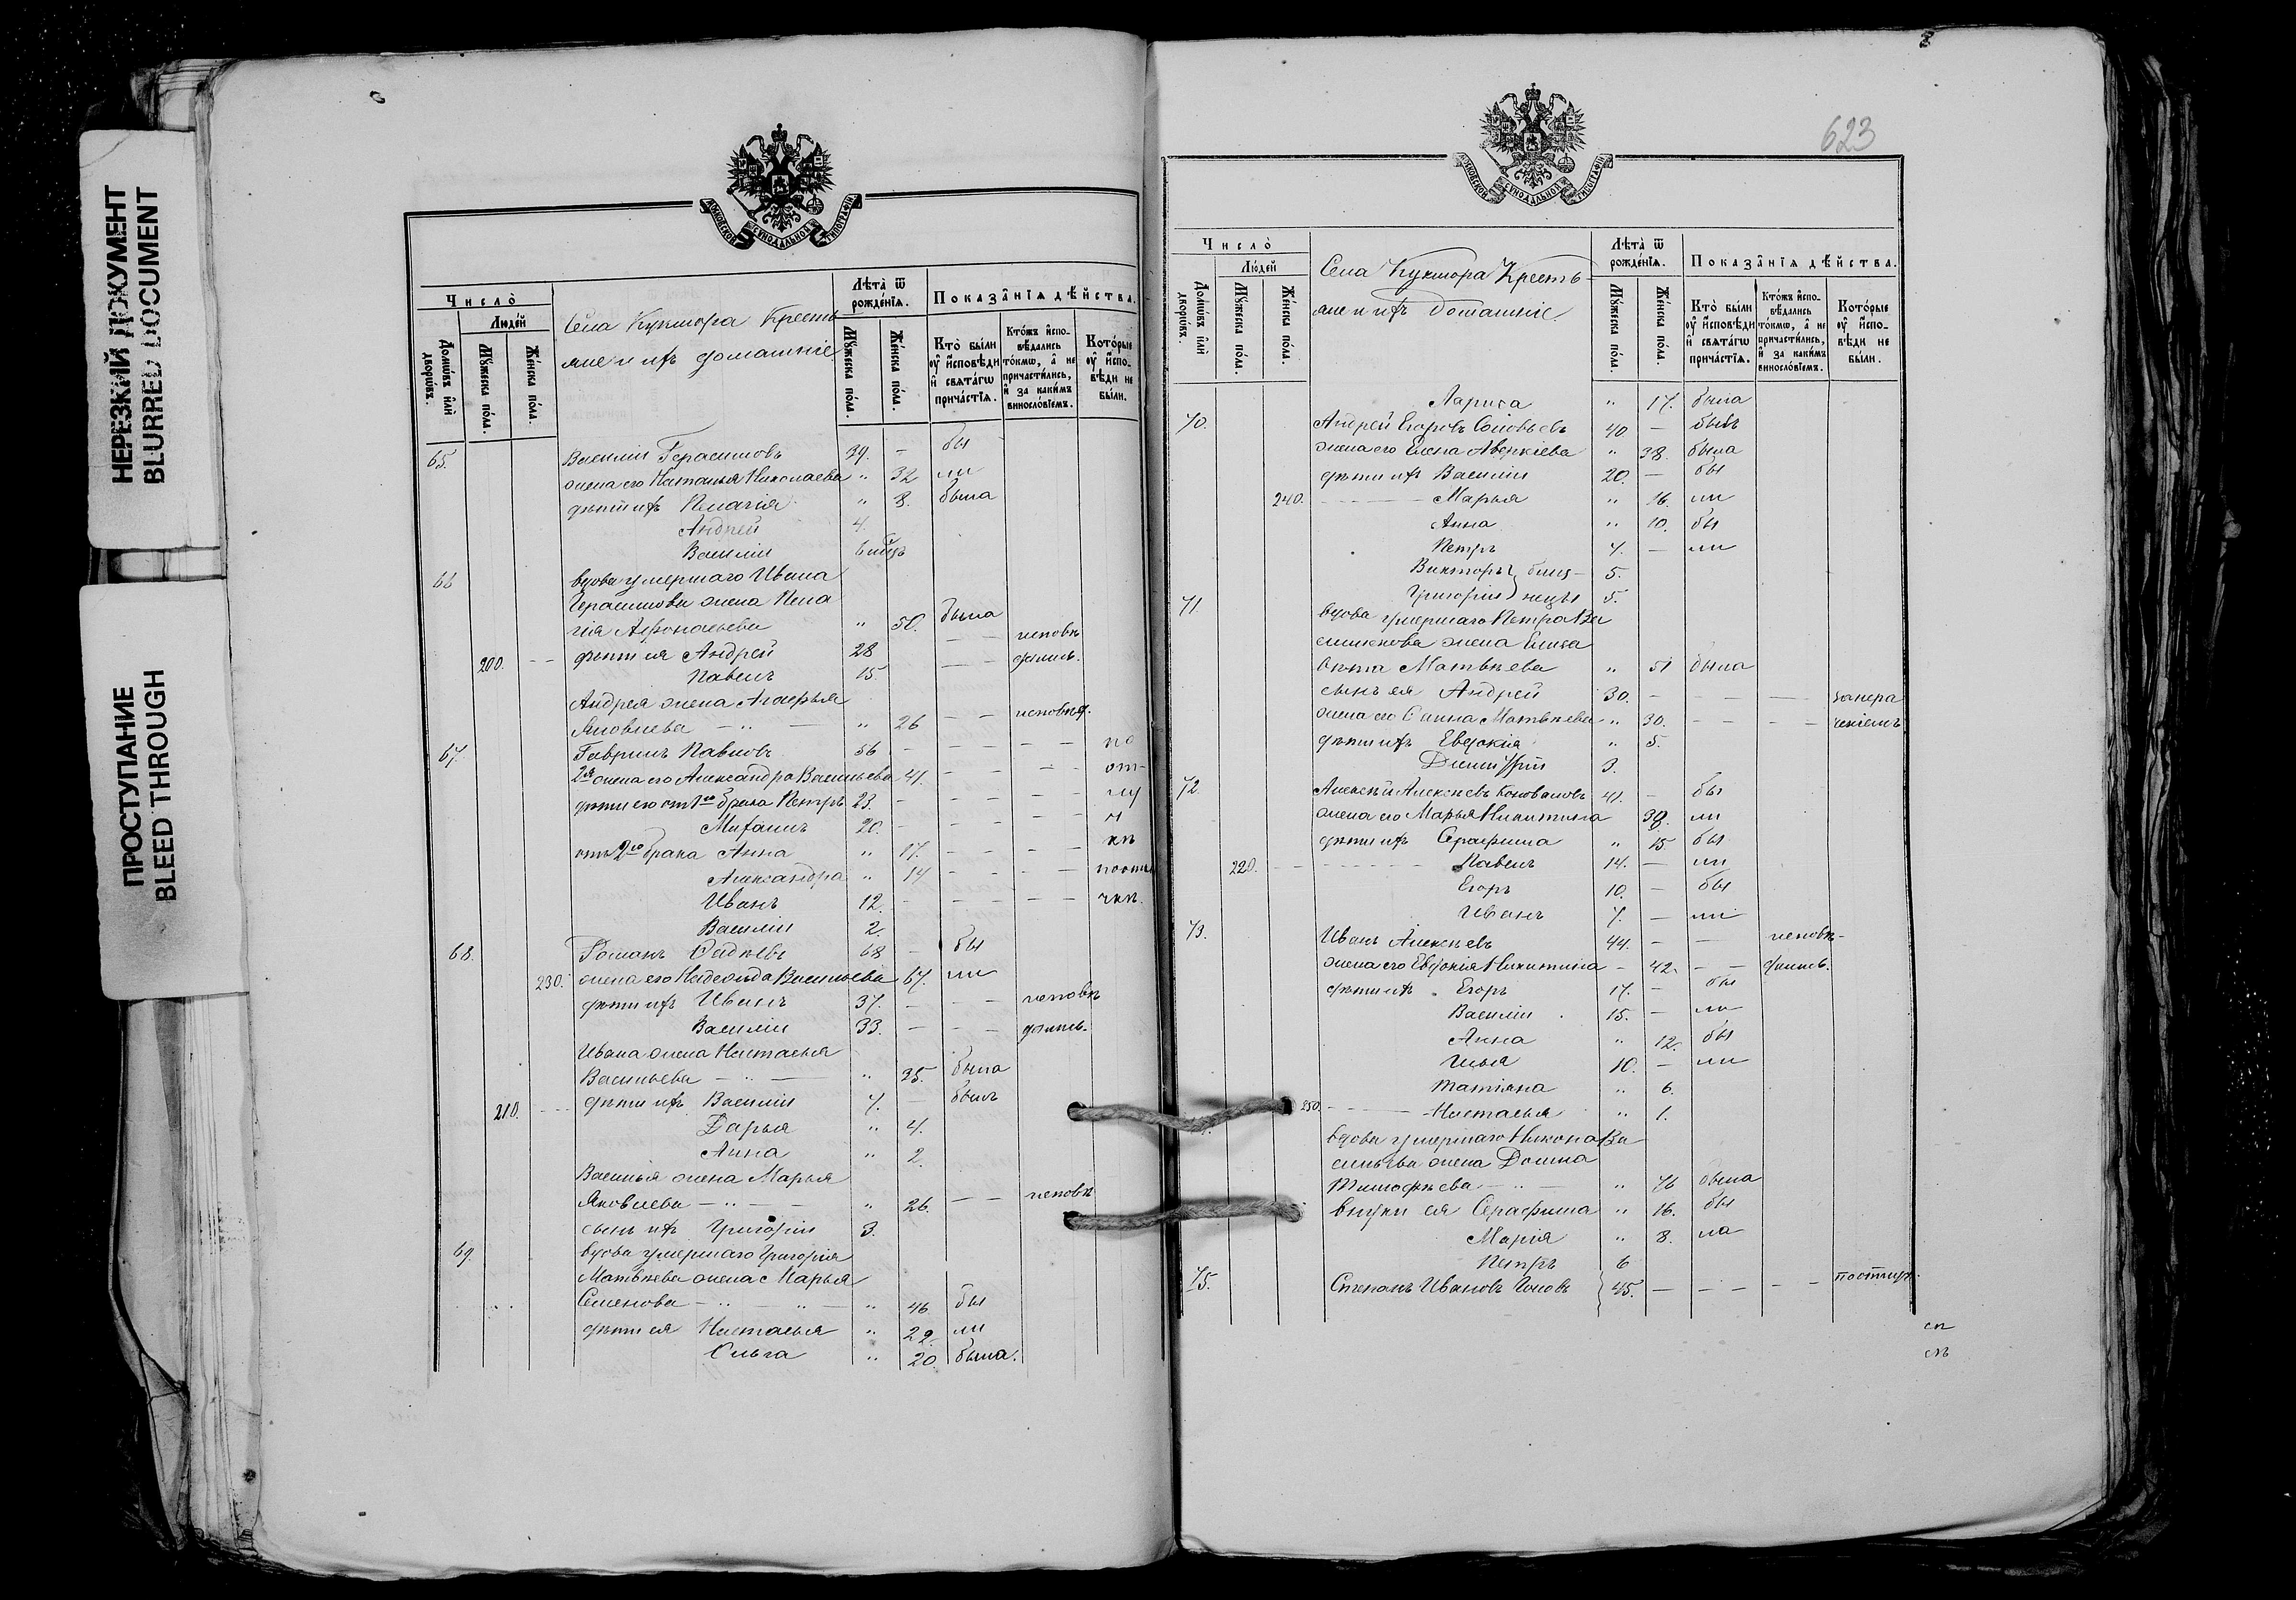 НЕРЕЗКИЙ ДОКУМЕНТ
BLURRED DOCUMENT
ПРОСТУПАНИЕ
BLEED THROUGH
МОСКОВСКОЙ СѴНОДАЛЬНОЙ ТИПОГРАФІИ
Число̀
Людей
Домѡвъ и҆лѝ дворѡвъ.
Мꙋжеска пола.
Женска пола.
Села Кукмора Кресть
яне и ихъ домашніе
Лѣта̀ ѿ рожденїѧ.
Мꙋжеска пола.
Женска пола.
Показанїѧ дѣйства.
Кто̀ были ᲂу҆ и҆сповѣди и҆ свѧтагѡ причастїѧ.
Ктожъ и҆споведались токмѡ, а҆ не причастились, и҆ за какимъ винословїемъ.
Которые ᲂу҆ и҆сповѣди не были.
65. Василій Герасимовъ 39. - бы
жена его Наталья Николаева " 32 ли
дѣти ихъ Пелагія " 8. была
Андрей 4.
Василій
66 вдова умершаго Ивана
Герасимова жена Пела
гія Афонасьева " 50. была
200. дѣти ея Андрей 28 - - исповѣ
Павелъ 15 - - дались.
Андрея жена Агафья
Яковлева " 26 - - исповѣд.
67. Гаврилъ Павловъ 56 - - - - по
2я жена его Александра Васильева 41. - - - - от
дѣти его отъ 1го брака Петръ 23. - - - - лу
Михаилъ 20. - - - - ч
отъ 2го брака Анна " 17. - - - - кѣ
Александра " 14 - - - -
Иванъ 12. - - - - -
Василій 2.
68. Романъ 68 - бы
230. жена его Надежда Васильева 67. ли
дѣти ихъ Иванъ 37. - - - исповѣ
Василій 33. - - - дались.
Ивана жена Настасья
Васильева " 35. была
210. дѣти ихъ Василій 7. - былъ
Дарья " 4.
Анна " 2.
Василья жена Марья
Яковлева " 26. - - исповѣ
сынъ ихъ Григорій 3.
69. вдова умершаго Григорія
Матвѣева жена Марья
Семенова " 46 бы
дѣти ея Настасья " 22. ли
Ольга " 20. была.
623
МОСКОВСКОЙ СѴНОДАЛЬНОЙ ТИПОГРАФІИ
Число̀
Людей
Домѡвъ и҆лѝ дворѡвъ.
Мꙋжеска пола.
Женска пола.
Села Кукмора Кресть-
яне и ихъ домашніе
Лѣта̀ ѿ рожденїѧ.
Мꙋжеска пола.
Женска пола.
Показанїѧ дѣйства.
Кто̀ были ᲂу҆ и҆сповѣди и҆ свѧтагѡ причастїѧ.
Ктожъ и҆споведались токмѡ, а҆ не причастились, и҆ за какимъ винословїемъ.
Которые ᲂу҆ и҆сповѣди не были.
Лариса " 17. была
70. Андрей Егоровъ Соловьевъ 40 - былъ
жена его Елена Аверкіева " 38. была
дѣти ихъ Василій 20. - бы
240. Марья " 16. ли
Анна " 10. бы
Петръ 7. - ли
Викторъ близ- 5.
Григорій нецы 5.
71 вдова умершаго Петра Ва
силькова жена Елиса
вѣта Матвѣева " 51 была
сынъ ея Андрей 30. - - - занера
жена его Анна Матвѣева " 30. - - - - ченіемъ
дѣти ихъ Евдокія " 5.
Димитрій 3.
72. Алексѣй Алексѣевъ Коновалов 41. - бы
жена его Марья Никитина 38. ли
дѣти ихъ Серафима " 15 бы
220. Павелъ 14. - ли
Егоръ 10. - бы
Иванъ 7. - ли
73. Иванъ Алексѣевъ 44. - - исповѣ-
жена его Евдокія Никитина - 42. - - дались.
дѣти ихъ Егоръ 17. - бы
Василій 15. - ли
Анна " 12. бы
Илья 10. - ли
Татіяна " 6.
250. Настасья " 1.
вдова умершаго Никона Ва
сильева жена Домна
Тимофѣева " 76 была
внуки ея Серафима " 16. бы
Марія " 8. ла
Петръ 6
75. Степанъ Ивановъ 45. - - - - -